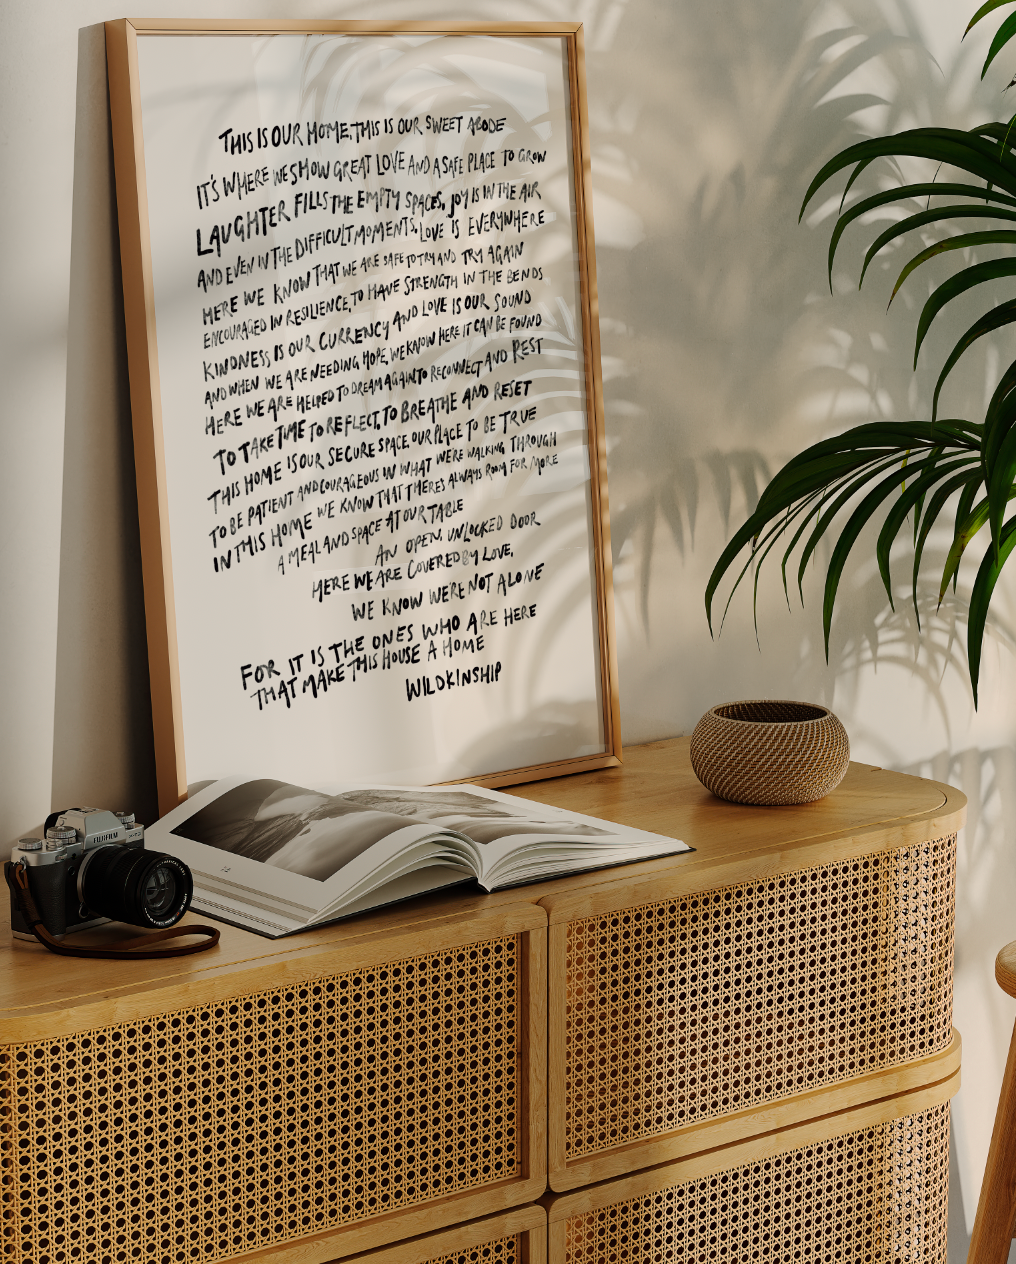 THIS IS OUR HOME, THIS IS OUR SWEET ABODE
IT'S WHERE WE SHOW GREAT LOVE AND A SAFE PLACE TO GROW
LAUGHTER FILLS THE EMPTY SPACES, JOY IS IN THE AIR
AND EVEN IN THE DIFFICULT MOMENTS, LOVE IS EVERYWHERE
HERE WE KNOW THAT WE ARE SAFE TO TRY AND TRY AGAIN
ENCOURAGED IN RESILIENCE, TO HAVE STRENGTH IN THE BENDS
KINDNESS IS OUR CURRENCY AND LOVE IS OUR SOUND
AND WHEN WE ARE NEEDING HOPE, WE KNOW HERE IT CAN BE FOUND
HERE WE ARE HELPED TO DREAM AGAIN TO RECONNECT AND REST
TO TAKE TIME TO REFLECT, TO BREATHE AND RESET
THIS HOME IS OUR SECURE SPACE, OUR PLACE TO BE TRUE
TO BE PATIENT AND COURAGEOUS IN WHAT WE'RE WALKING THROUGH
IN THIS HOME WE KNOW THAT THERE'S ALWAYS ROOM FOR MORE
A MEAL AND SPACE AT OUR TABLE
AN OPEN, UNLOCKED DOOR
HERE WE ARE COVERED BY LOVE,
WE KNOW WE'RE NOT ALONE
FOR IT IS THE ONES WHO ARE HERE
THAT MAKE THIS HOUSE A HOME
WILDKINSHIP
FUJIFILM